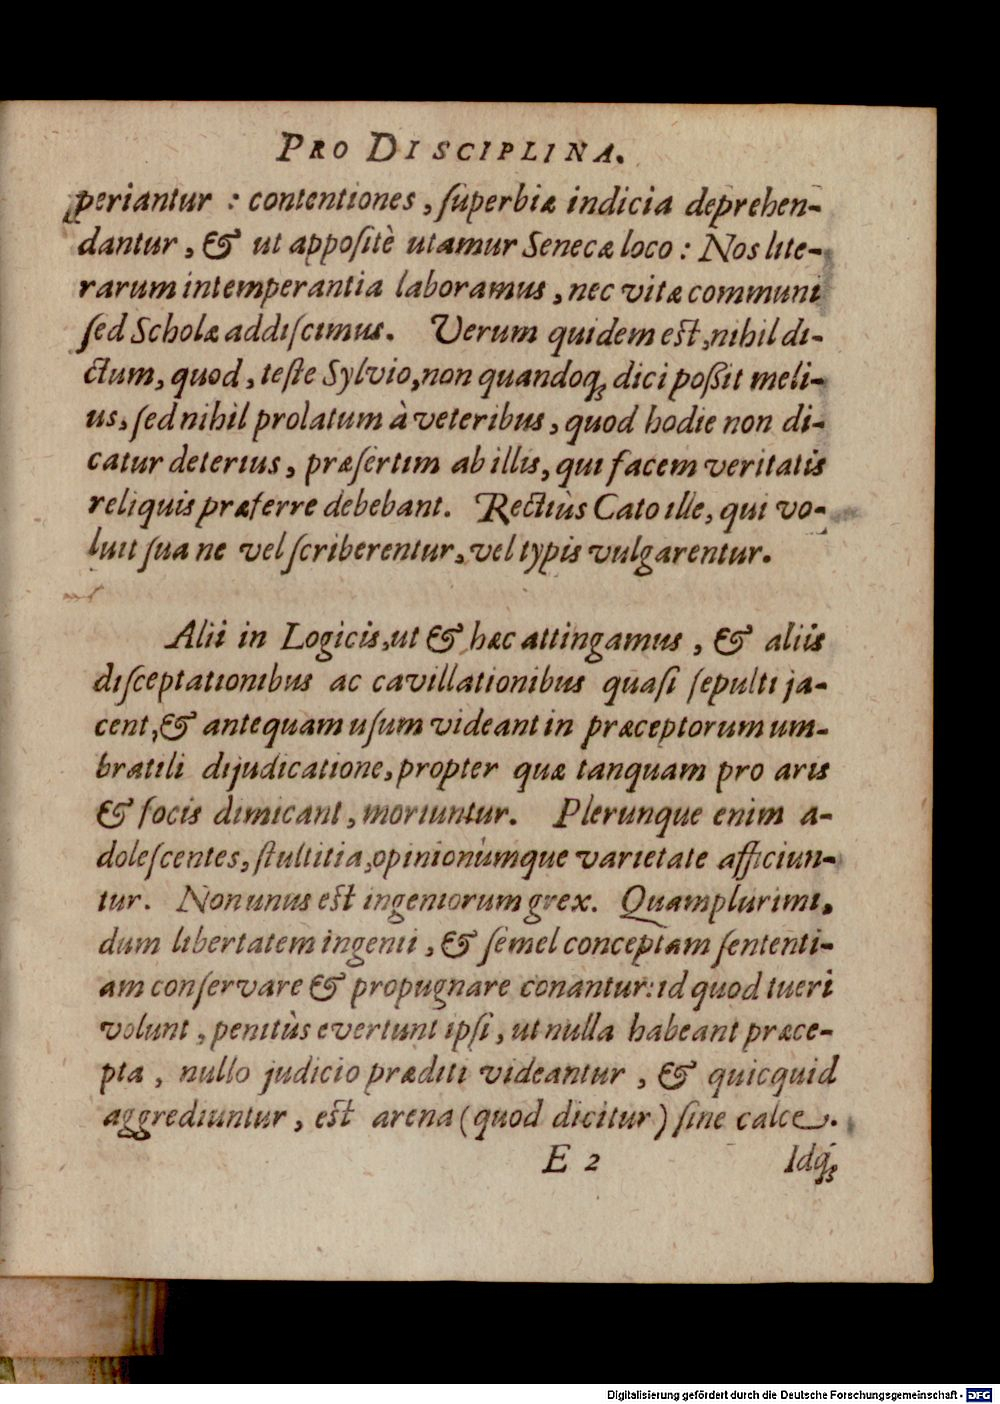 PRO DISCIPLINA.
periantur : contentiones, ſuperbiæ indicia deprehen-
dantur, & ut appoſitè utamur Senecæ loco : Nos lite-
rarum intemperantia laboramus, nec vitæ communi
ſed Scholæ addiſcimus. Verum quidem est, nihil di-
ctum, quod, teſte Sylvio, non quandoq; dici poßit meli-
us, ſed nihil prolatum à veteribus, quod hodie non di-
catur deterius, præſertim ab illis, qui facem veritatis
reliquis præferre debebant. Rectiùs Cato ille, qui vo-
luit ſua ne vel ſcriberentur, vel typis vulgarentur.
Alii in Logicis, ut & hæc attingamus, & aliis
diſceptationibus ac cavillationibus quaſi ſepulti ja-
cent, & antequam uſum videant in præceptorum um-
bratili dijudicatione, propter quæ tanquam pro aris
& focis dimicant, moriuntur. Plerunque enim a-
doleſcentes, ſtultitia, opinionúmque varietate afficiun-
tur. Non unus est ingeniorum grex. Quamplurimi,
dum libertatem ingenii, & ſemel conceptam ſententi-
am conſervare & propugnare conantur: id quod tueri
volunt, penitùs evertunt ipſi, ut nulla habeant præce-
pta, nullo judicio præditi videantur, & quicquid
aggrediuntur, est arena (quod dicitur) ſine calce.
E 2 Idq́;
Digitalisierung gefördert durch die Deutsche Forschungsgemeinschaft - DFG